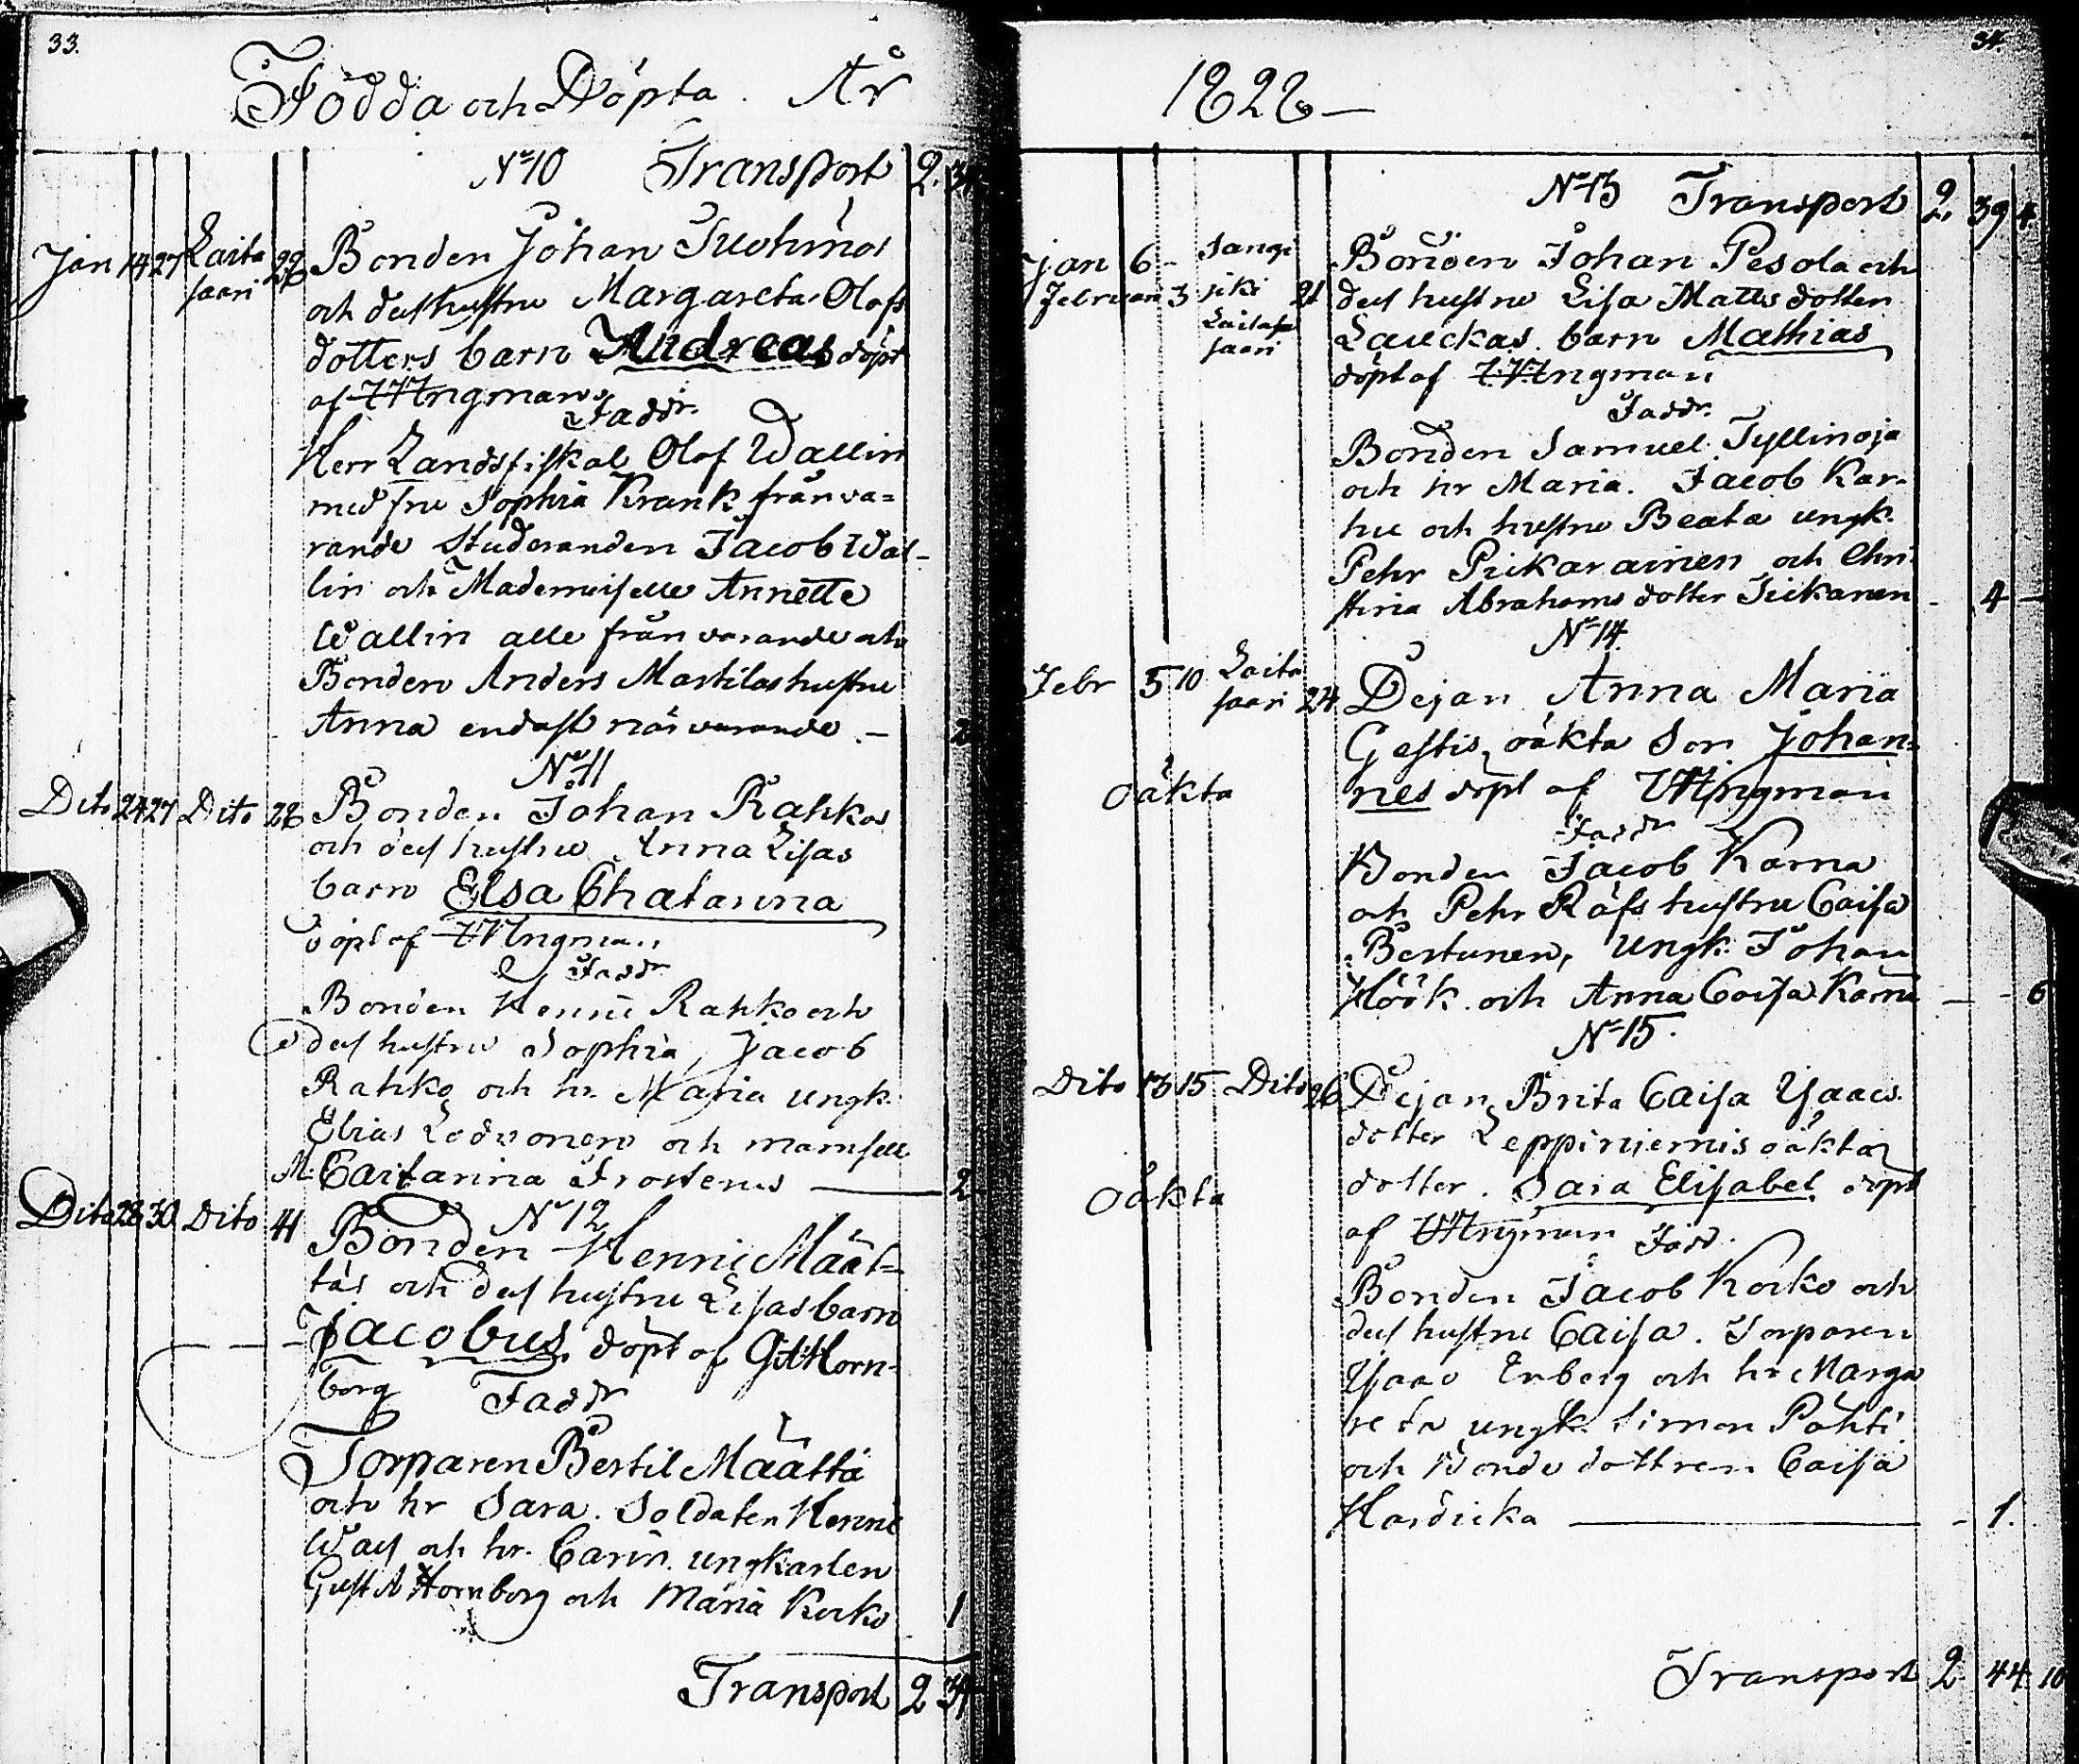 33.
Födda och Döpta. År
No 10 Transport 2. 34
Jan 14 27 Laita saari 28 Bonden Johan
och dess hustru Margareta Olofs
dotters barn Andreas döpt
af Ingman
Faddr.
Herr Landsfiskal Olof Wallin
med fru Sophia Krank frånva=
rande Studeranden Jacob Wal-
lin och Mademoiselle Annette
Wallin alle frånvarande och
Bonden Anders Martilas hustru
Anna endast närvarande. — 2
No 11
Dito 24 27 Dito 28 Bonden Johan Rahkos
och dess hustru Anna Lisas
barn Elsa Chatarina
döpt af Ingman
Faddr
Bonden Henric Rahko och
dess hustru Sophia, Jacob
Rahko och hr. Maria ungk.
Elias och mamsell
M. Caitarina Frosterus — 2
No 12
Dito 28 30 Dito 41 Bonden Henric Määt=
täs och dess hustru Lisas barn
Jacobus, döpt af G:A:Horn=
borg Faddr
Torparen Bertil Määttä
och hr Sara. Soldaten Henric
Wass och hr. Carin. ungkarlen
Gust A Hornborg och Maria Korko 1
Transport 2 39
34.
1828 —
No 13 Transport 2. 39 4.
Jan 6 - Sangi
Februari 3 jki 21
Laita
saari
Bonden Johan Pesola och
dess hustru Lisa Matts dotter
Lauckas barn Mathias
döpt af Ingman
Faddr.
Bonden Samuel Tyllinoja
och hr Maria. Jacob Kar-
hu och hustru Beata ungk.
Pehr Pikarainen och Chri
stina Abrahams dotter - 4 -
No 14.
Febr 5 10 Laita saari 24 Pejan Anna Maria
Gestis, oäkta Son Johan=
oäkta
nes döpt af Ingman
Faddr
Bonden Jacob Karna
och Pehr Räfs hustru Caisa
Bertunen, Ungk. Johan
Höök och Anna Caisa Karna — - 6
No 15.
Dito 13 15 Dito 26 Pejan Brita Caisa Ysaacs
dotter Leppiniemis oäkta
oäkta
dotter. Sara Elisabet döpt
af Ingman Fadd.
Bonden Jacob Korko och
dess hustru Caisa. Torparen
Ysaac Enberg och hr Marga
reta ungk. Simon Pähti
och Bonde dottren Caisa
Hardicka — - 1.
Transport 2 44. 10